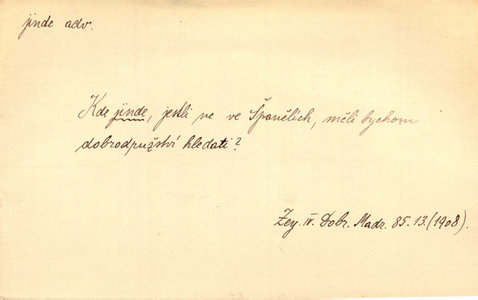 jinde adv.
Kde jinde, jestli ne ve Španělích, měli bychom
dobrodružství hledati?
Zey. IV. Dobr. Madr. 85. 13. (1908).